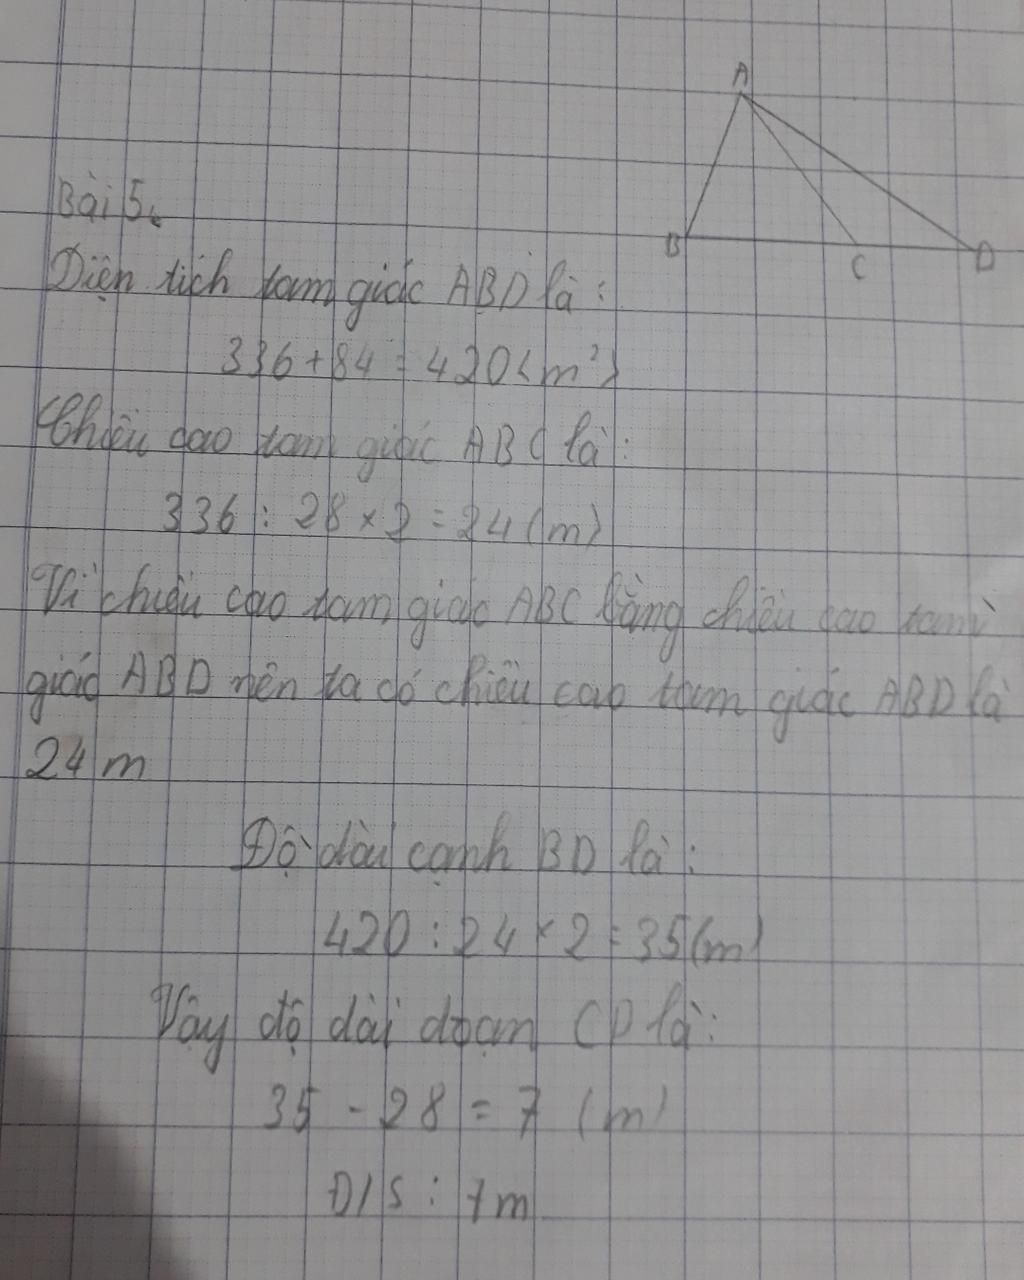 A
B
C
D
Bài 5.
Diện tích tam giác ABD là :
336 + 84 = 420 (m²)
Chiều cao tam giác ABC là :
336 : 28 × 2 = 24 (m)
Vì chiều cao tam giác ABC bằng chiều cao tam
giác ABD nên ta có chiều cao tam giác ABD là
24 m
Độ dài cạnh BD là :
420 : 24 × 2 = 35 (m)
Vậy độ dài đoạn CD là :
35 - 28 = 7 (m)
Đ/S : 7m